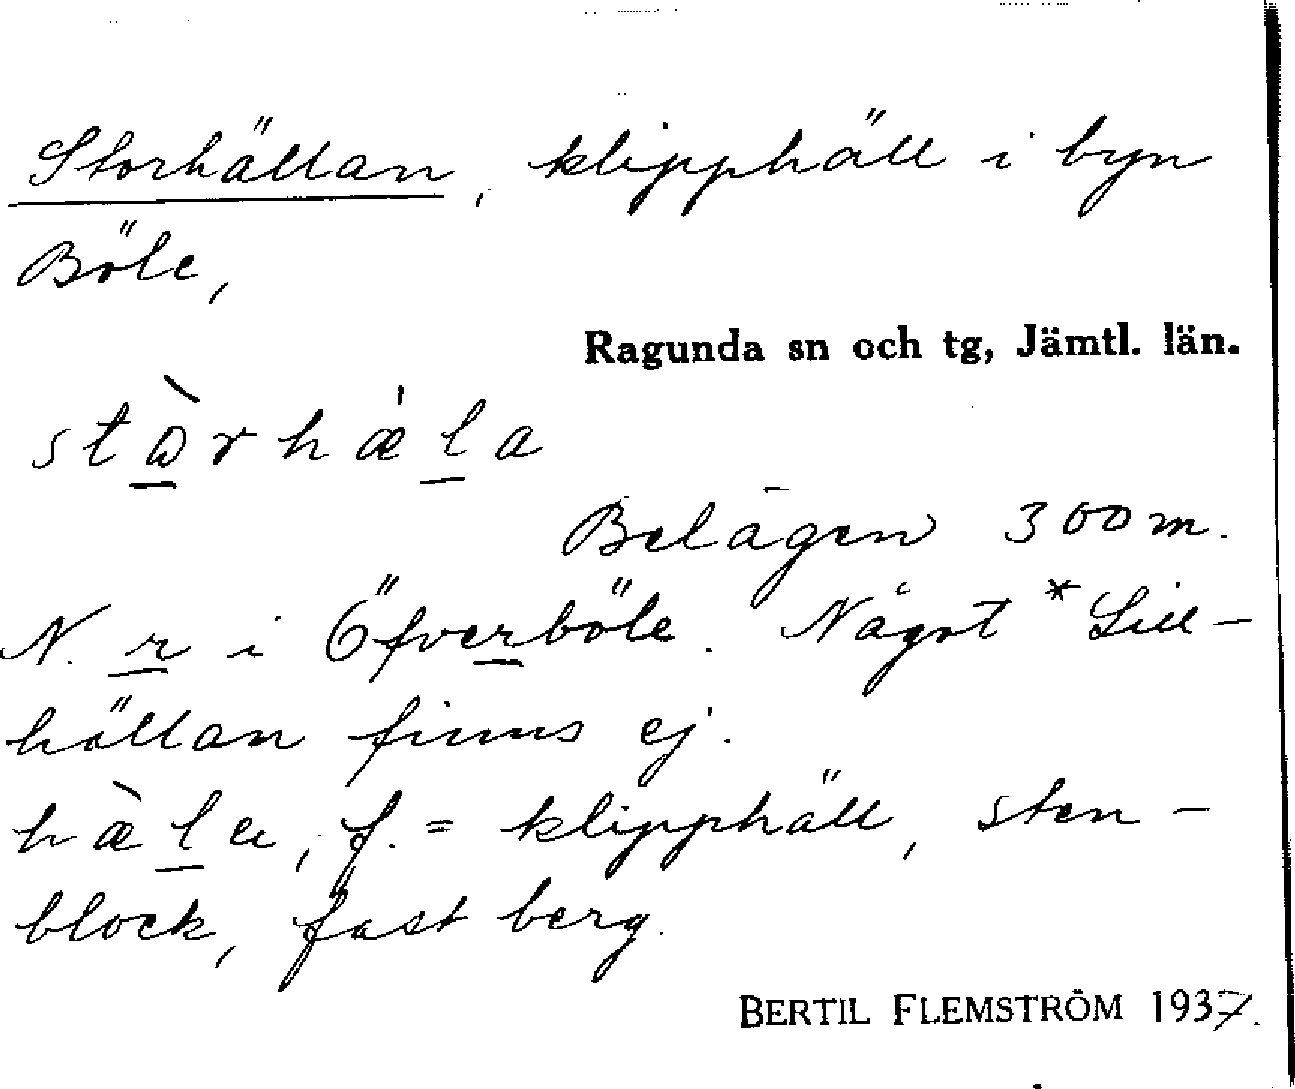 Storhällan, klipphäll i byn
Böle,
Ragunda sn och tg, Jämtl. län.
stɷ̀rhæ̍la
Belägen 300 m.
N. r i Öfverböle. Något *Lill-
hällan finns ej.
hæ̀la, f. = klipphäll, sten-
block, fast berg.
BERTIL FLEMSTRÖM 1937.